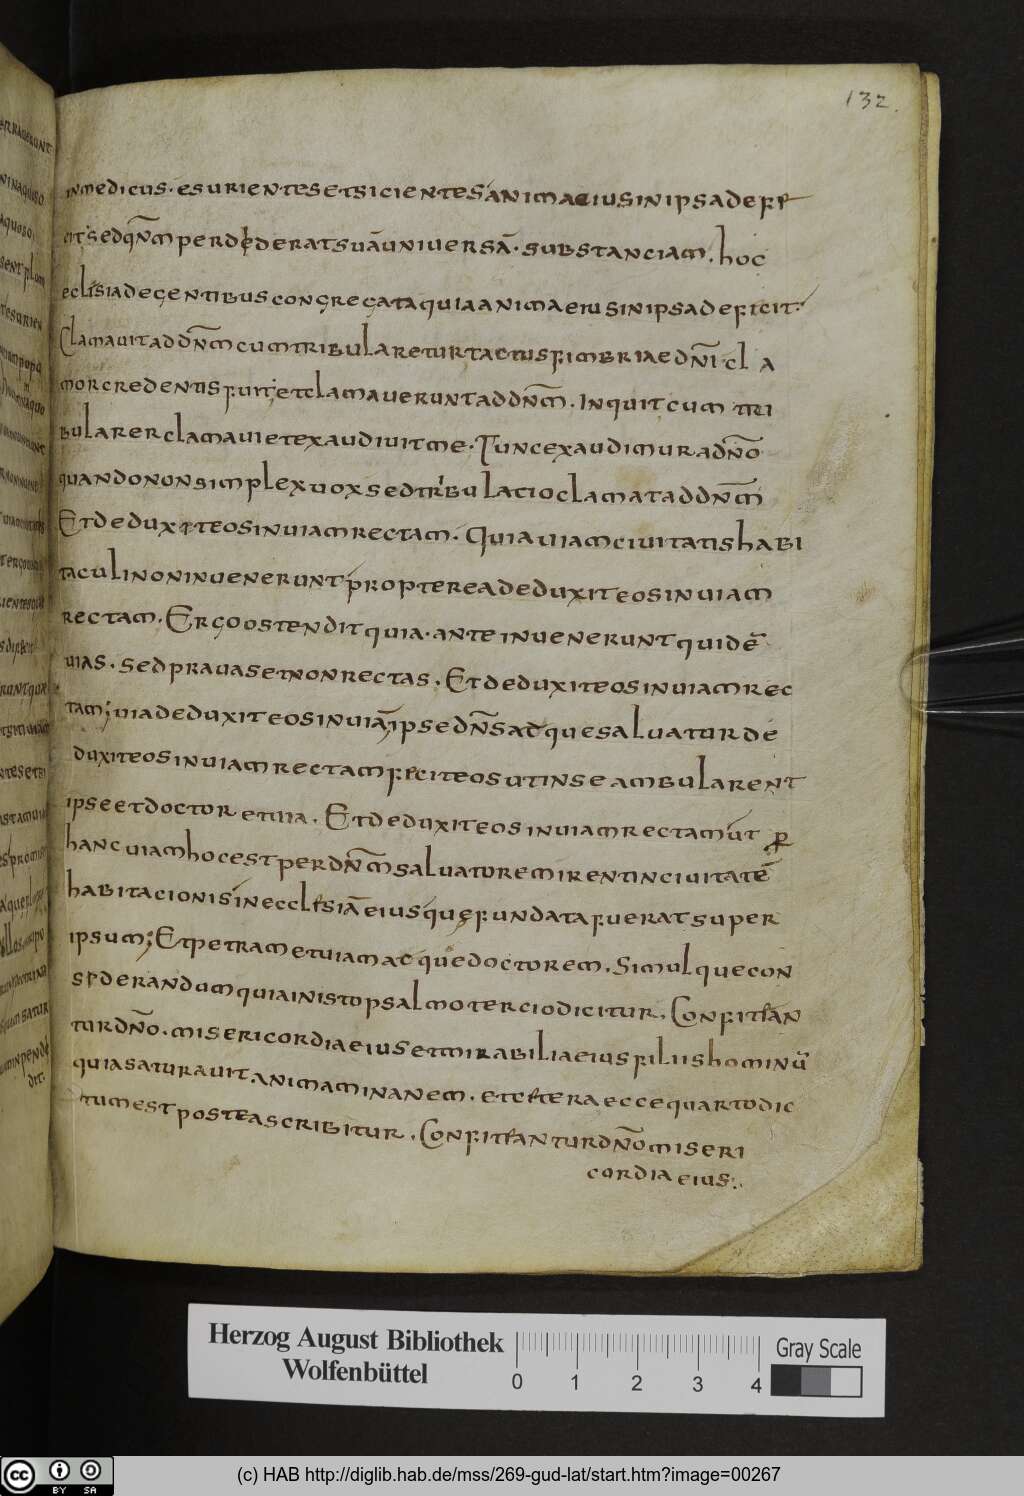 132.
in medicus. esurientes et siciente s anima eius in ipsa deffe
cit. sed qn̄m perdederat suā universā. substanciam. hoc
eclisia de gentibus congregata quia anima eius in ipsa deficit.
Clamavit ad dn̄m cum tribularetur tactus fimbriae dn̄i cla
mor credentis fuit. et clamaverunt ad dn̄m. Inquit cum tri
bularer clamavi et exaudivit me. Tunc exaudimur a dn̄o
quando non simplex vox sed tribulatio clamat ad dn̄m
Et deduxit eos in viam rectam. Quia viam civitatis habi
taculi non invenerunt propterea deduxit eos in viam
rectam. Ergo ostendit quia. ante invenerunt quidē
vias. sed pravas et non rectas. Et deduxit eos in viam rec
tam; via deduxit eos in viā ipse dn̄s adque salvatur de
duxit eos in viam rectam fecit eos ut in se ambularent
ipse et doctor et via. Et deduxit eos in viam rectam ut per
hanc viam hoc est per dn̄m salvatorem irent in civitatē
habitacionis in ecclesiā eius quę fundata fuerat super
ipsum; Et petram et viam ac quedoctorem. Simul que con
sederandum quia in isto psalmo tercio dicitur. Confitean
tur dn̄o. misericordiae eius et mirabilia eius filiis hominū
quia saturavit. animam inanem. et cetera ecce quarto dic
tum est postea scribitur. Confiteantur dn̄o miseri
cordia eius:.
Herzog August Bibliothek
Wolfenbüttel
0 1 2 3 4
Gray Scale
cc BY SA
(c) HAB http://diglib.hab.de/mss/269-gud-lat/start.htm?image=00267